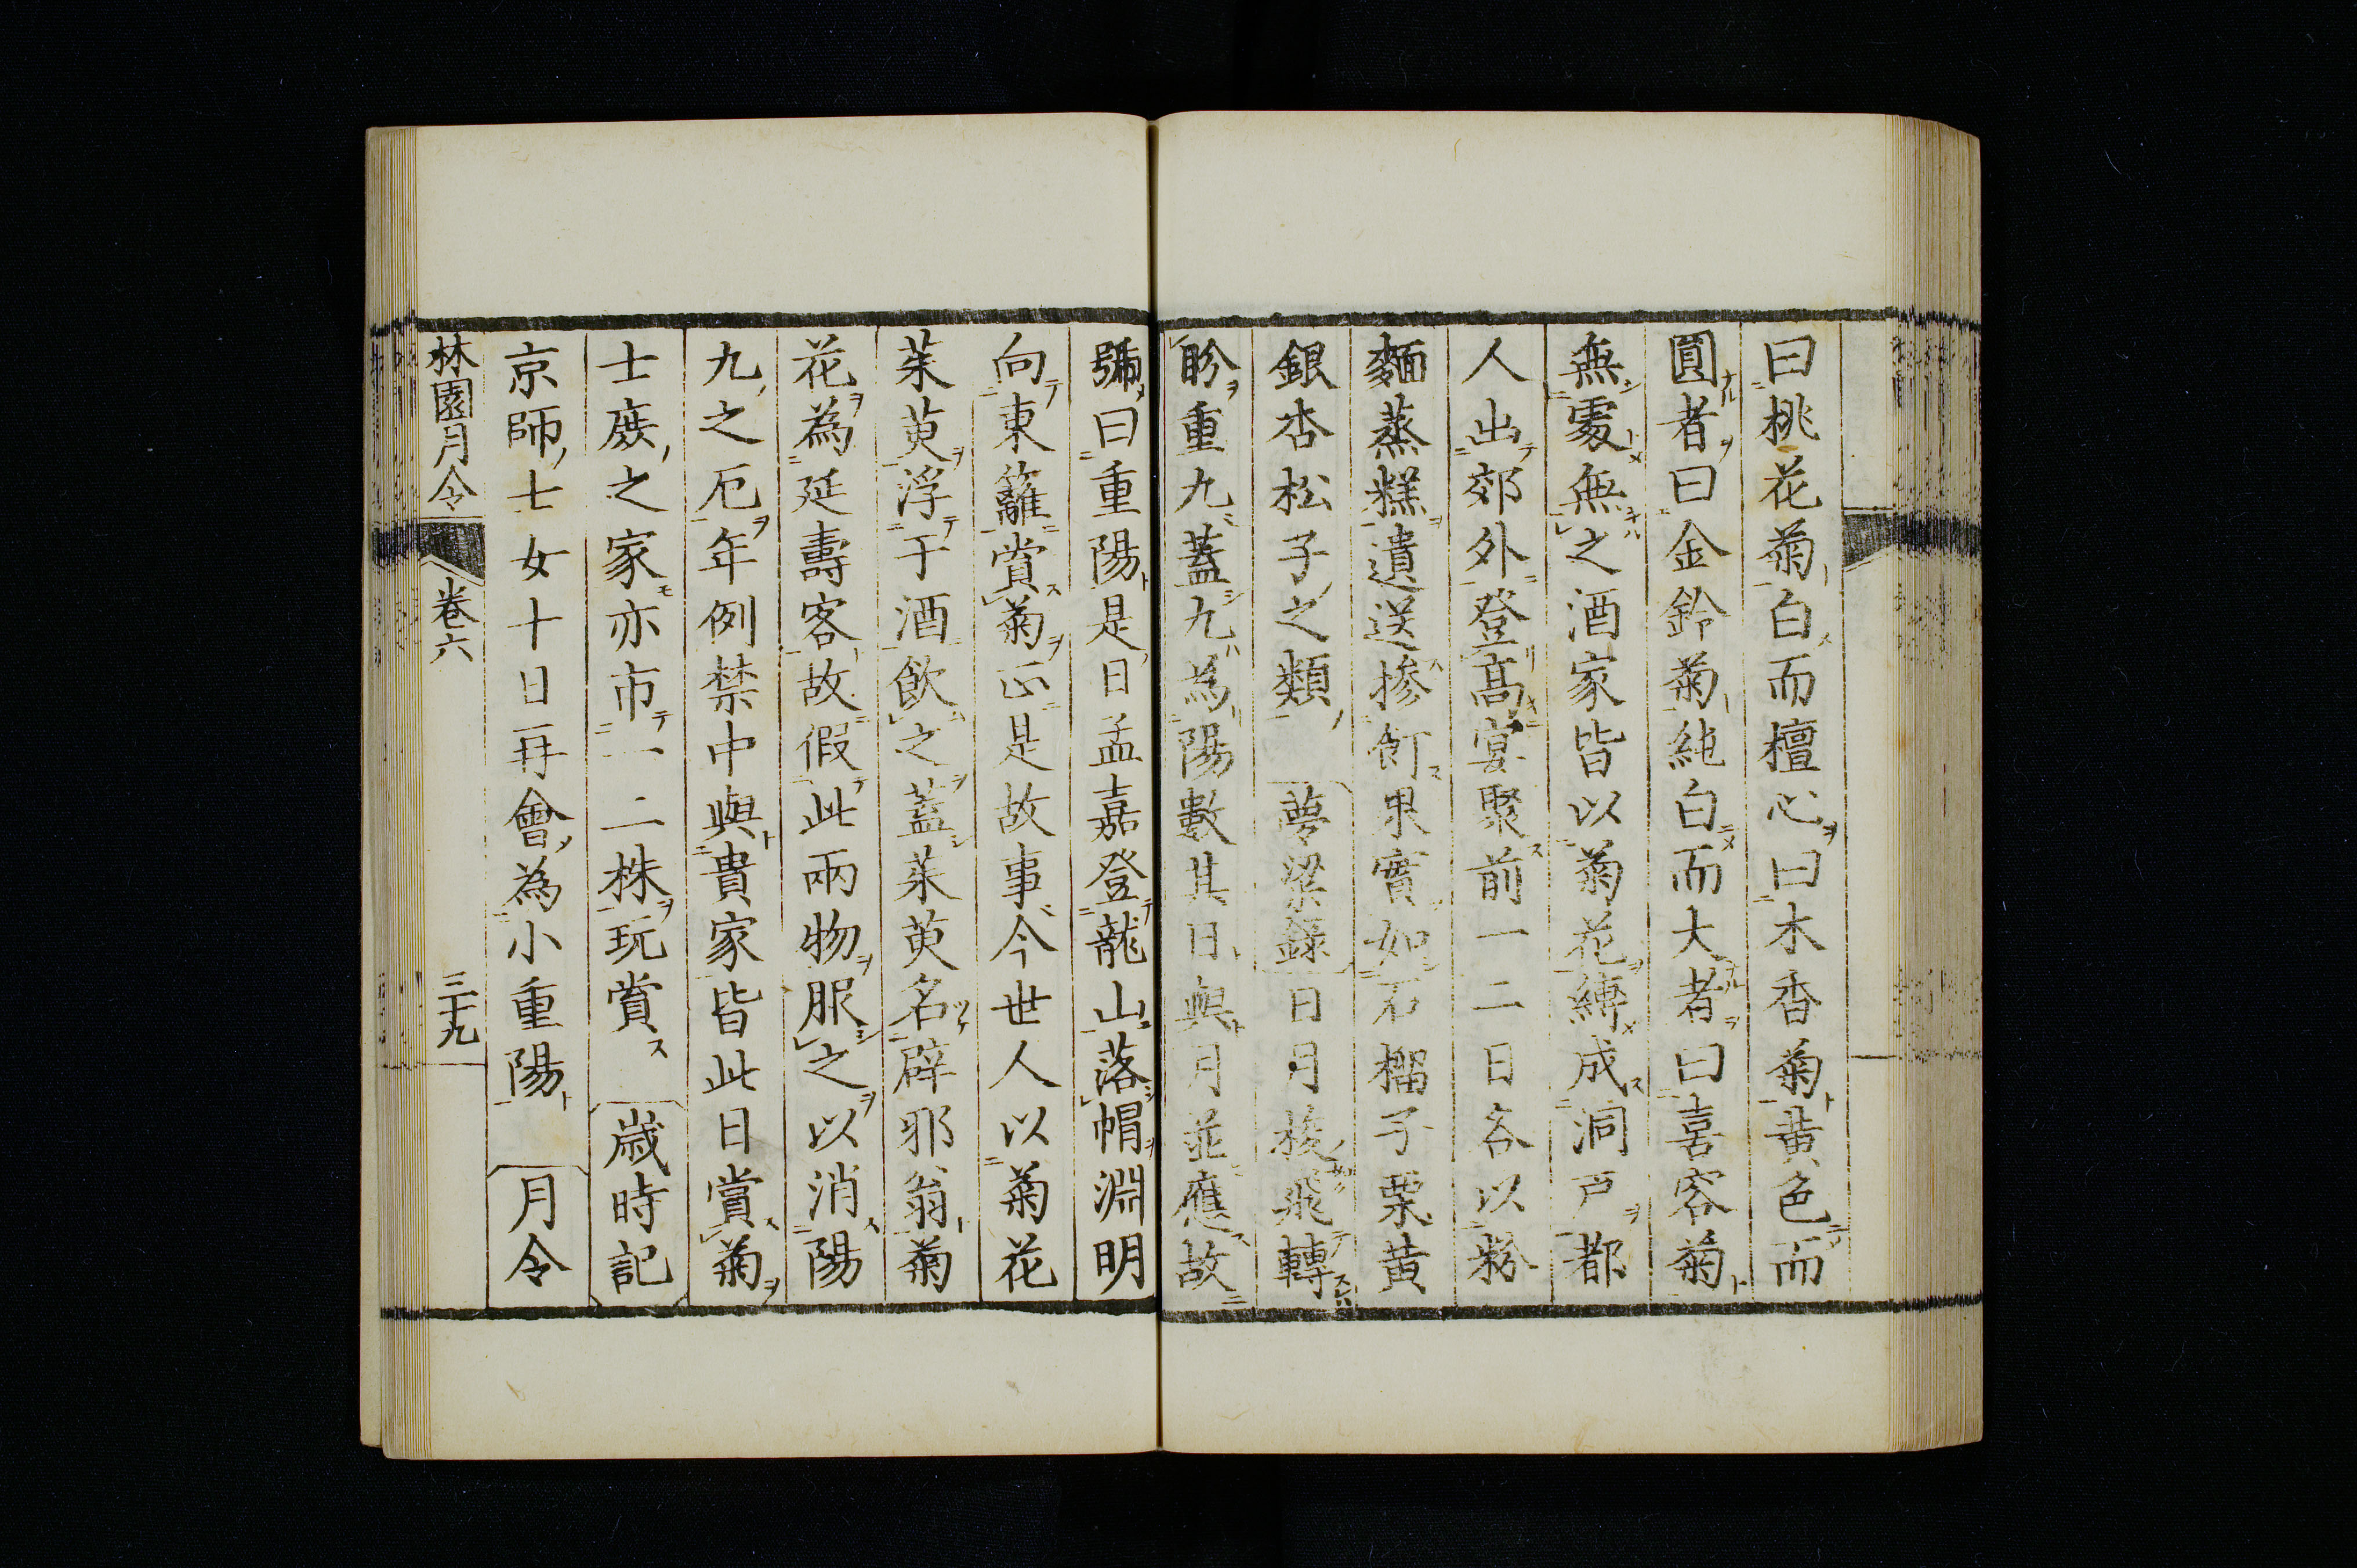 曰桃花菊白而檀心曰木香菊黄色而
圓者曰金鈴菊純白而大者曰喜容菊
無處無之酒家皆以菊花縛成洞戸都
人出郊外登髙宴聚前一二日各以粉
麵蒸糕遺送摻飣果實如石榴子栗黄
銀杏松子之類 夢粱錄 日月梭飛轉
盻重九蓋九為陽數其日與月並應故
號曰重陽是日孟嘉登龍山落帽淵明
向東籬賞菊正是故事今世人以菊花
茱萸浮于酒飲之蓋茱萸名辟邪翁菊
花為延壽客故假此兩物服之以消陽
九之厄年例禁中與貴家皆此日賞菊
士庶之家亦市一二株玩賞 歲時記
京師士女十日再會為小重陽 月令
林園月令 卷六 三十九